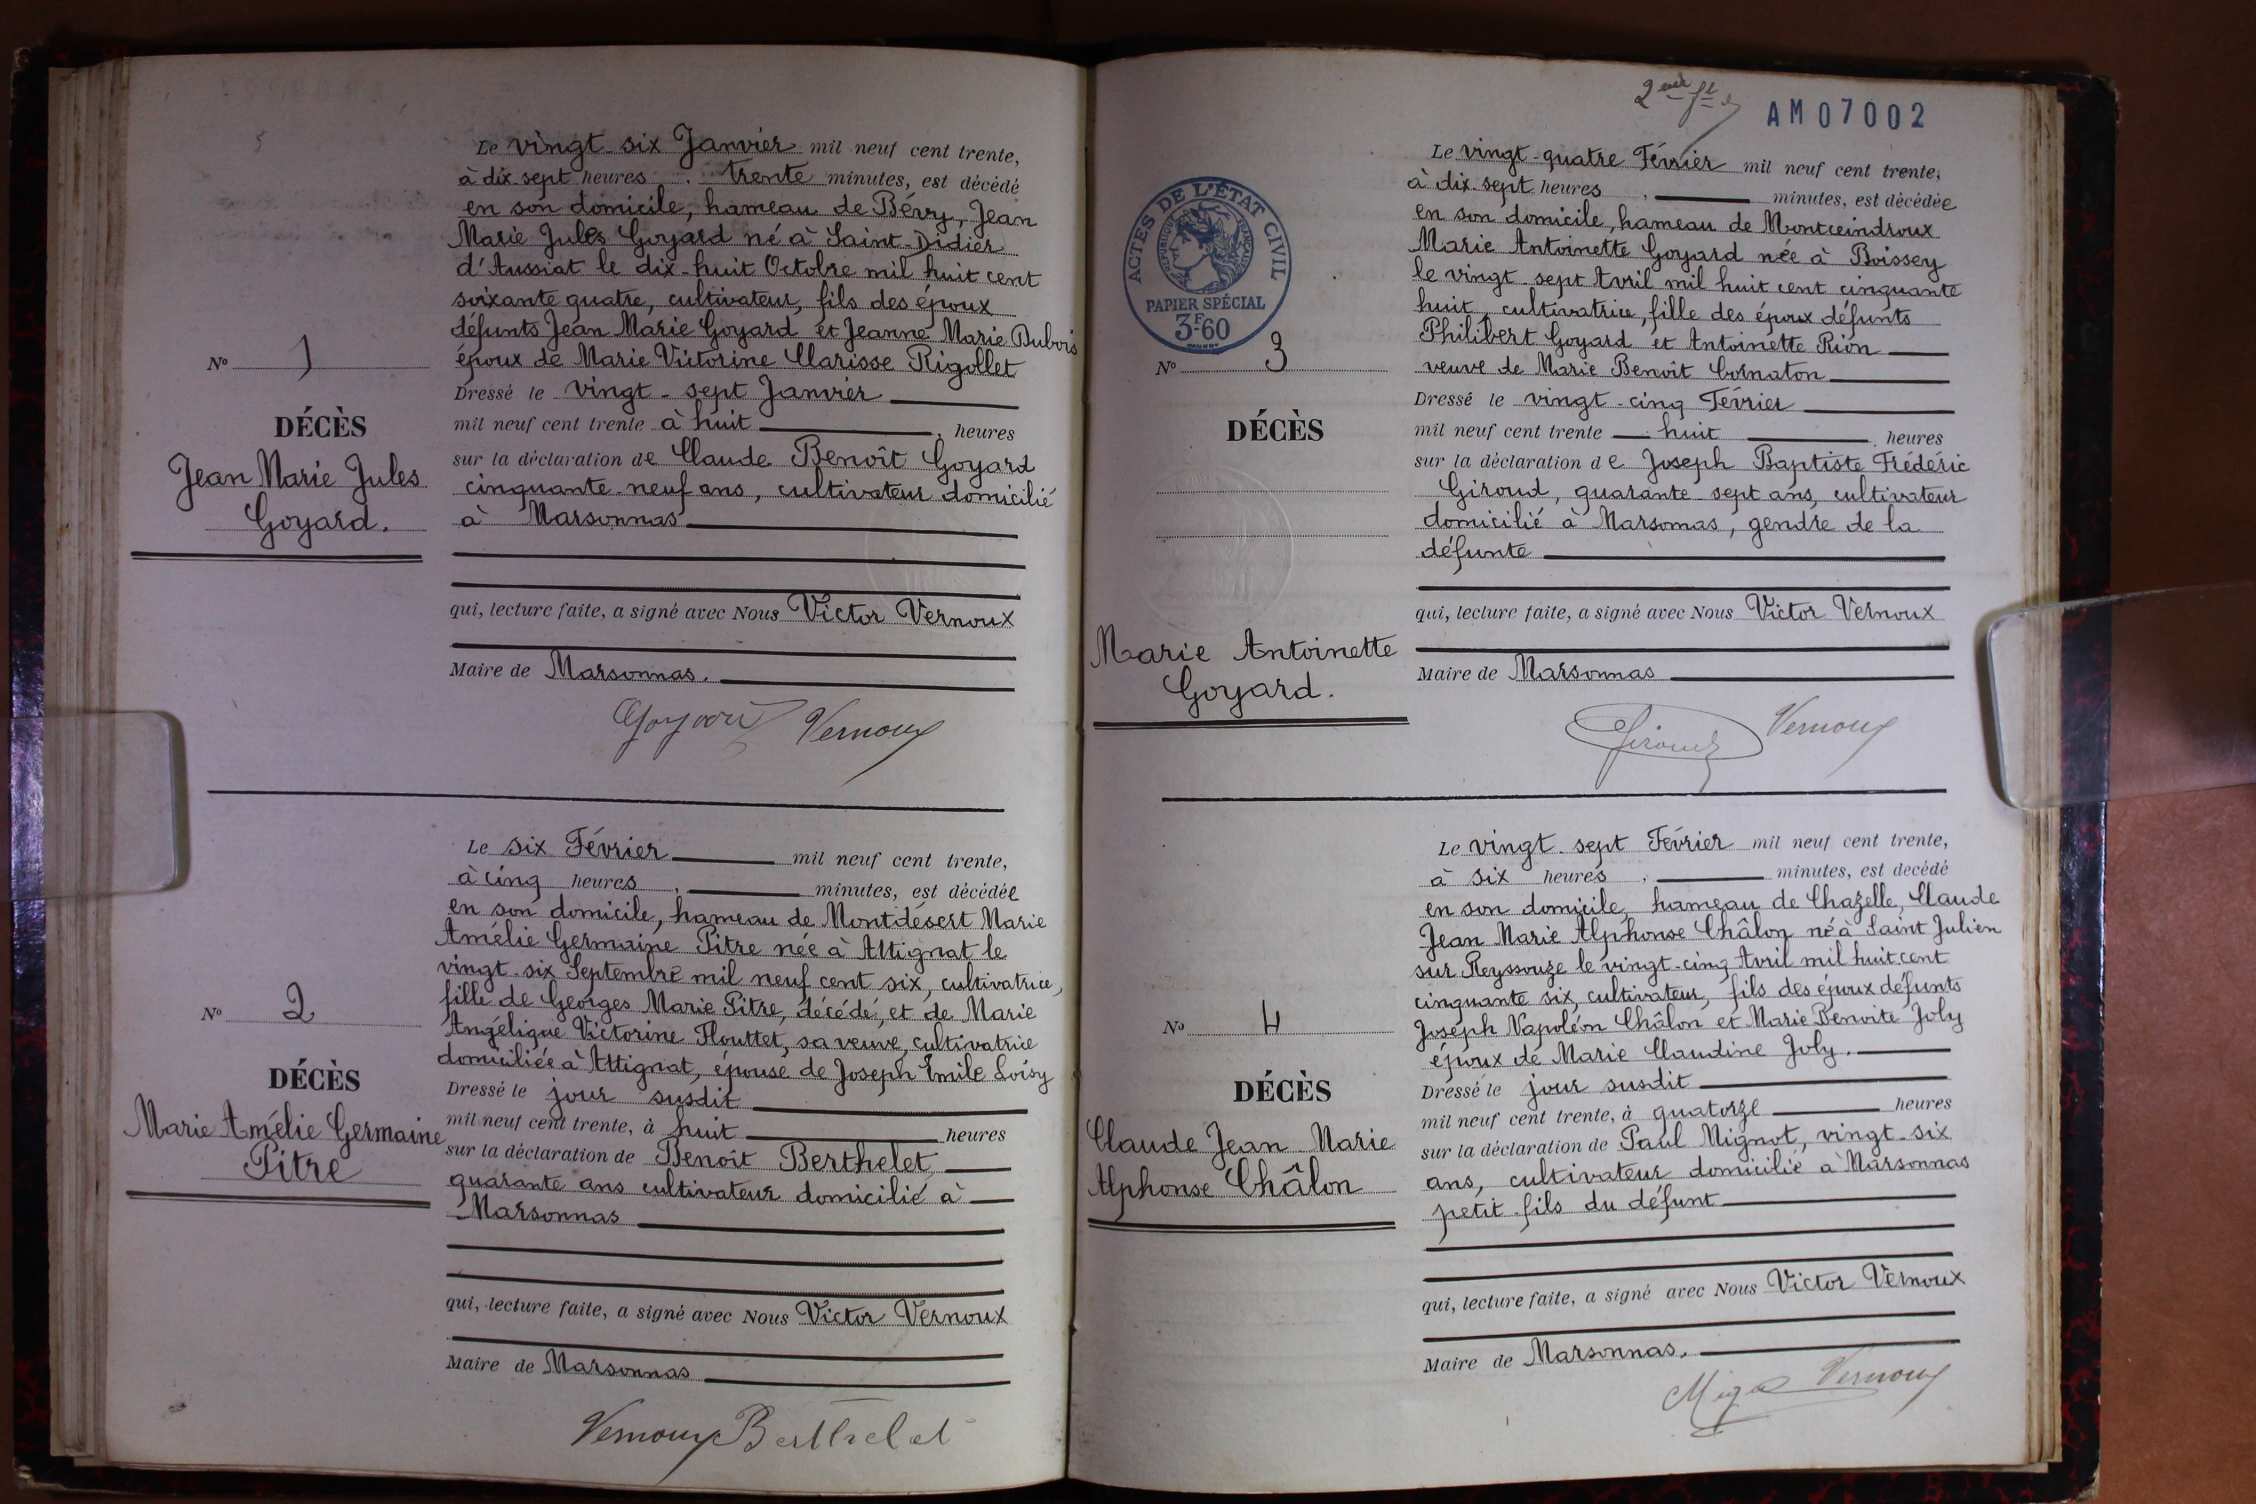 Le vingt-six Janvier mil neuf cent trente,
à dix-sept heures trente minutes, est décédé
en son domicile, hameau de Bévry, Jean
Marie Jules Goyard né à Saint-Didier
d'Aussiat le dix-huit Octobre mil huit cent
soixante quatre, cultivateur, fils des époux
défunts Jean Marie Goyard et Jeanne Marie Dubois
époux de Marie Victorine Clarisse Rigollet
Dressé le vingt-sept Janvier
mil neuf cent trente à huit, heures
sur la déclaration de Claude Benoît Goyard
cinquante-neuf ans, cultivateur domicilié
à Marsonnas
qui, lecture faite, a signé avec Nous Victor Vernoux
Maire de Marsonnas.
Goyard Vernoux
No 1
DÉCÈS
Jean Marie Jules
Goyard.
Le six Février mil neuf cent trente,
à cinq heures, minutes, est décédée
en son domicile, hameau de Montdésert Marie
Amélie Germaine Pitre née à Attignat le
vingt-six Septembre mil neuf cent six, cultivatrice,
fille de Georges Marie Pitre, décédé, et de Marie
Angélique Victorine Flouttet, sa veuve, cultivatrice
domiciliée à Attignat, épouse de Joseph Emile Loisy
Dressé le jour susdit
mil neuf cent trente, à huit heures
sur la déclaration de Benoît Berthelet,
quarante ans cultivateur domicilié à
Marsonnas
qui, lecture faite, a signé avec Nous Victor Vernoux
Maire de Marsonnas
Vernoux Berthelet
No 2
DÉCÈS
Marie Amélie Germaine
Pitre
AM07002
ACTES DE L'ÉTAT CIVIL
RÉPUBLIQUE FRANÇAISE
PAPIER SPÉCIAL
3F60
Le vingt-quatre Février mil neuf cent trente,
à dix-sept heures, minutes, est décédée
en son domicile, hameau de Montceindroux
Marie Antoinette Goyard née à Boissey
le vingt-sept Avril mil huit cent cinquante
huit, cultivatrice, fille des époux défunts
Philibert Goyard et Antoinette Rion
veuve de Marie Benoît Cornaton
Dressé le vingt-cinq Février
mil neuf cent trente huit heures
sur la déclaration de Joseph Baptiste Frédéric
Giroud, quarante-sept ans, cultivateur
domicilié à Marsonnas, gendre de la
défunte
qui, lecture faite, a signé avec Nous Victor Vernoux
Maire de Marsonnas
Giroud Vernoux
No 3
DÉCÈS
Marie Antoinette
Goyard.
Le vingt-sept Février mil neuf cent trente,
à six heures, minutes, est decédé
en son domicile, hameau de Chazelle, Claude
Jean Marie Alphonse Châlon né à Saint Julien
sur Reyssouze le vingt-cinq Avril mil huit cent
cinquante six, cultivateur, fils des époux défunts
Joseph Napoléon Châlon et Marie Benoite Joly
époux de Marie Claudine Joly.
Dressé le jour susdit
mil neuf cent trente, à quatorze heures
sur la déclaration de Paul Mignot, vingt-six
ans, cultivateur domicilié à Marsonnas
petit-fils du défunt
qui, lecture faite, a signé avec Nous Victor Vernoux
Maire de Marsonnas.
Vernoux
No 4
DÉCÈS
Claude Jean Marie
Alphonse Châlon